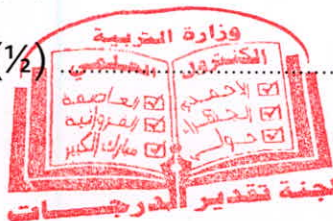 (½)
وزارة التربية
الكنترول العلمي
الأحمدي
الجهراء
حولي
العاصمة
الفروانية
مبارك الكبير
لجنة تقدير الدرجات